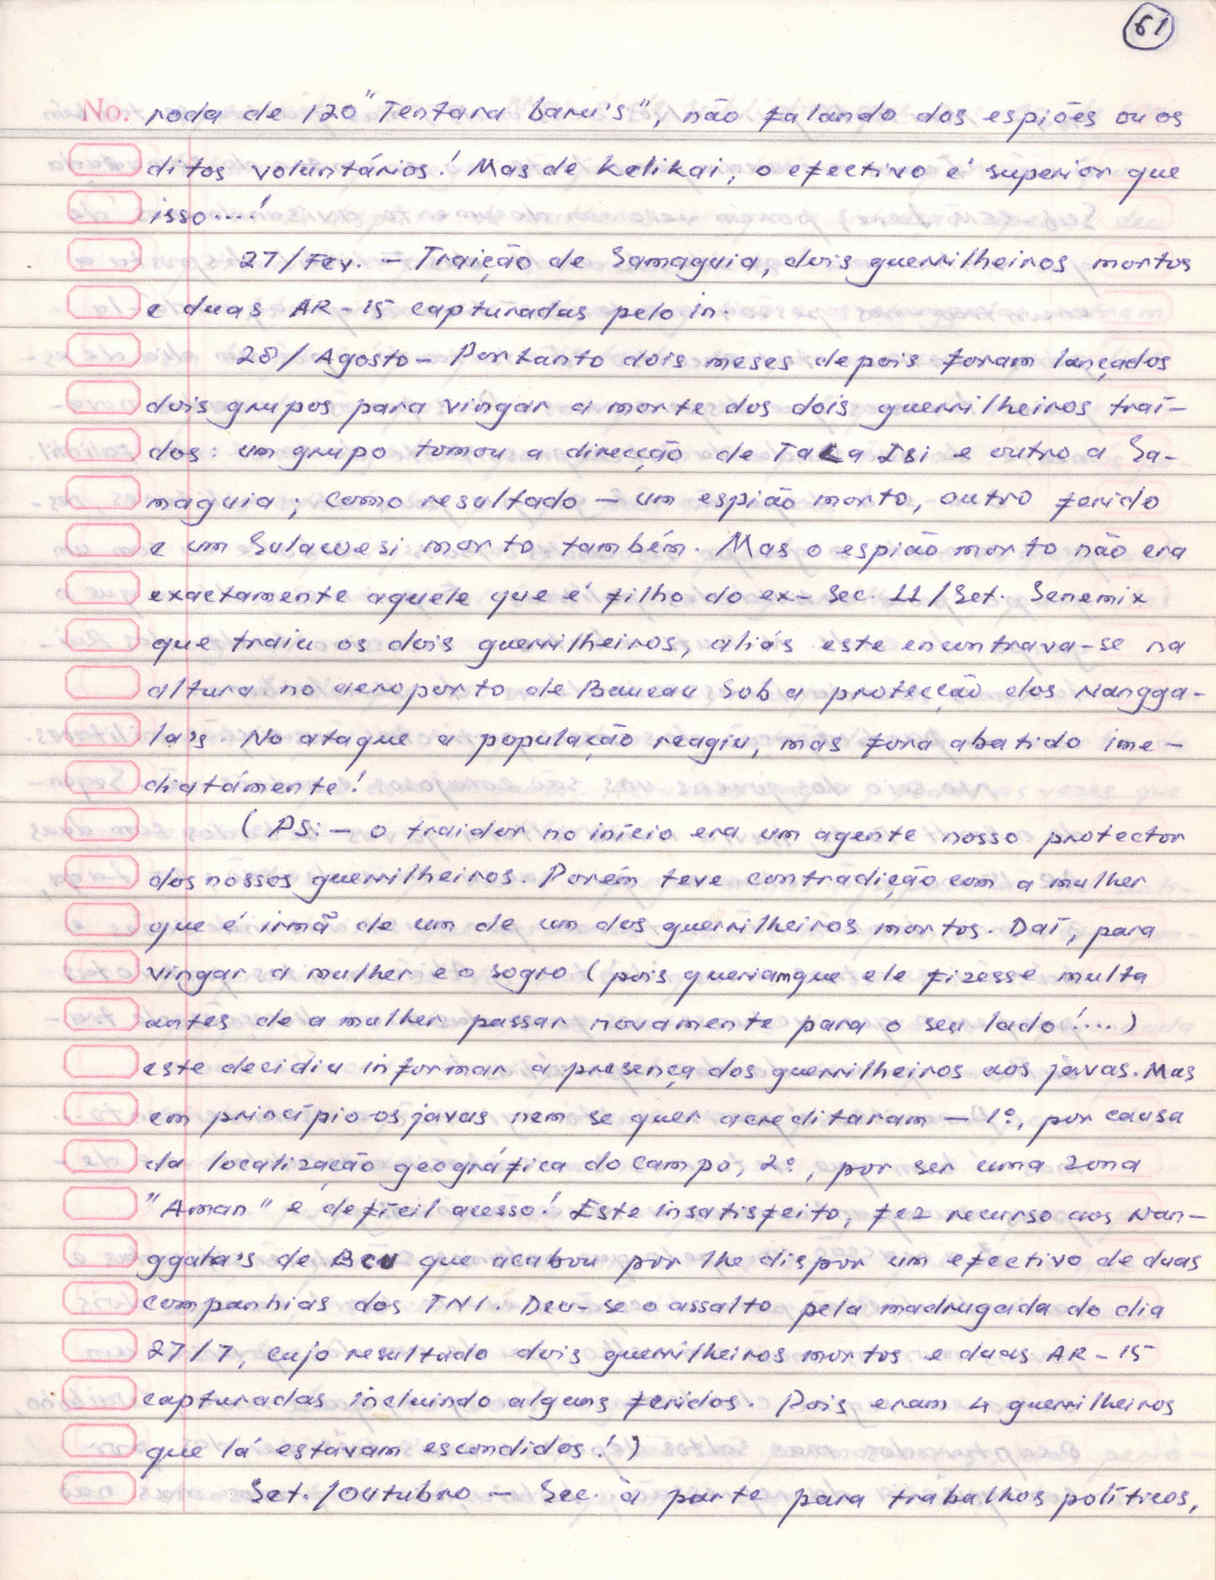 61
No. roda de 120 "Tentara baru's", não falando dos espiões ou os
ditos voluntários! Mas de Kelikai, o efectivo é superior que
isso....!
27/Fev. - Traição de Samaguia, dois guerrilheiros mortos
e duas AR-15 capturadas pelo in.
28/Agosto - Portanto dois meses depois foram lançados
dois grupos para vingar a morte dos dois guerrilheiros traí-
dos: um grupo tomou a direcção de Tala Isi e outro a Sa-
maguia; como resultado - um espião morto, outro ferido
e um Sulawesi morto também. Mas o espião morto não era
exactamente aquele que é filho do ex-Sec. 11/Set. Senemix
que traiu os dois guerrilheiros, aliás este encontrava-se na
altura no aeroporto de Baucau sob a protecção dos Nangga-
la's. No ataque a população reagiu, mas fora abatido ime-
diatámente!
(PS: - o traidor no início era um agente nosso protector
dos nossos guerrilheiros. Porém teve contradição com a mulher
que é irmã de um de um dos guerrilheiros mortos. Daí, para
vingar a mulher e o sogro (pois queriam que ele fizesse multa
antes de a mulher passar novamente para o seu lado!...)
este decidiu informar a presença dos guerrilheiros aos javas. Mas
em princípio os javas nem se quer acreditaram - 1º, por causa
da localização geográfica do campo, 2º, por ser uma zona
"Aman" e defícil acesso! Este insatisfeito, fez recurso aos Nan-
ggala's de BCU que acabou por lhe dispor um efectivo de duas
companhias dos TNI. Deu-se o assalto pela madrugada do dia
27/7, cujo resultado dois guerrilheiros mortos e duas AR-15
capturadas incluindo alguns feridos. Pois eram 4 guerrilheiros
que lá estavam escondidos!)
Set./Outubro - Sec. à parte para trabalhos políticos,